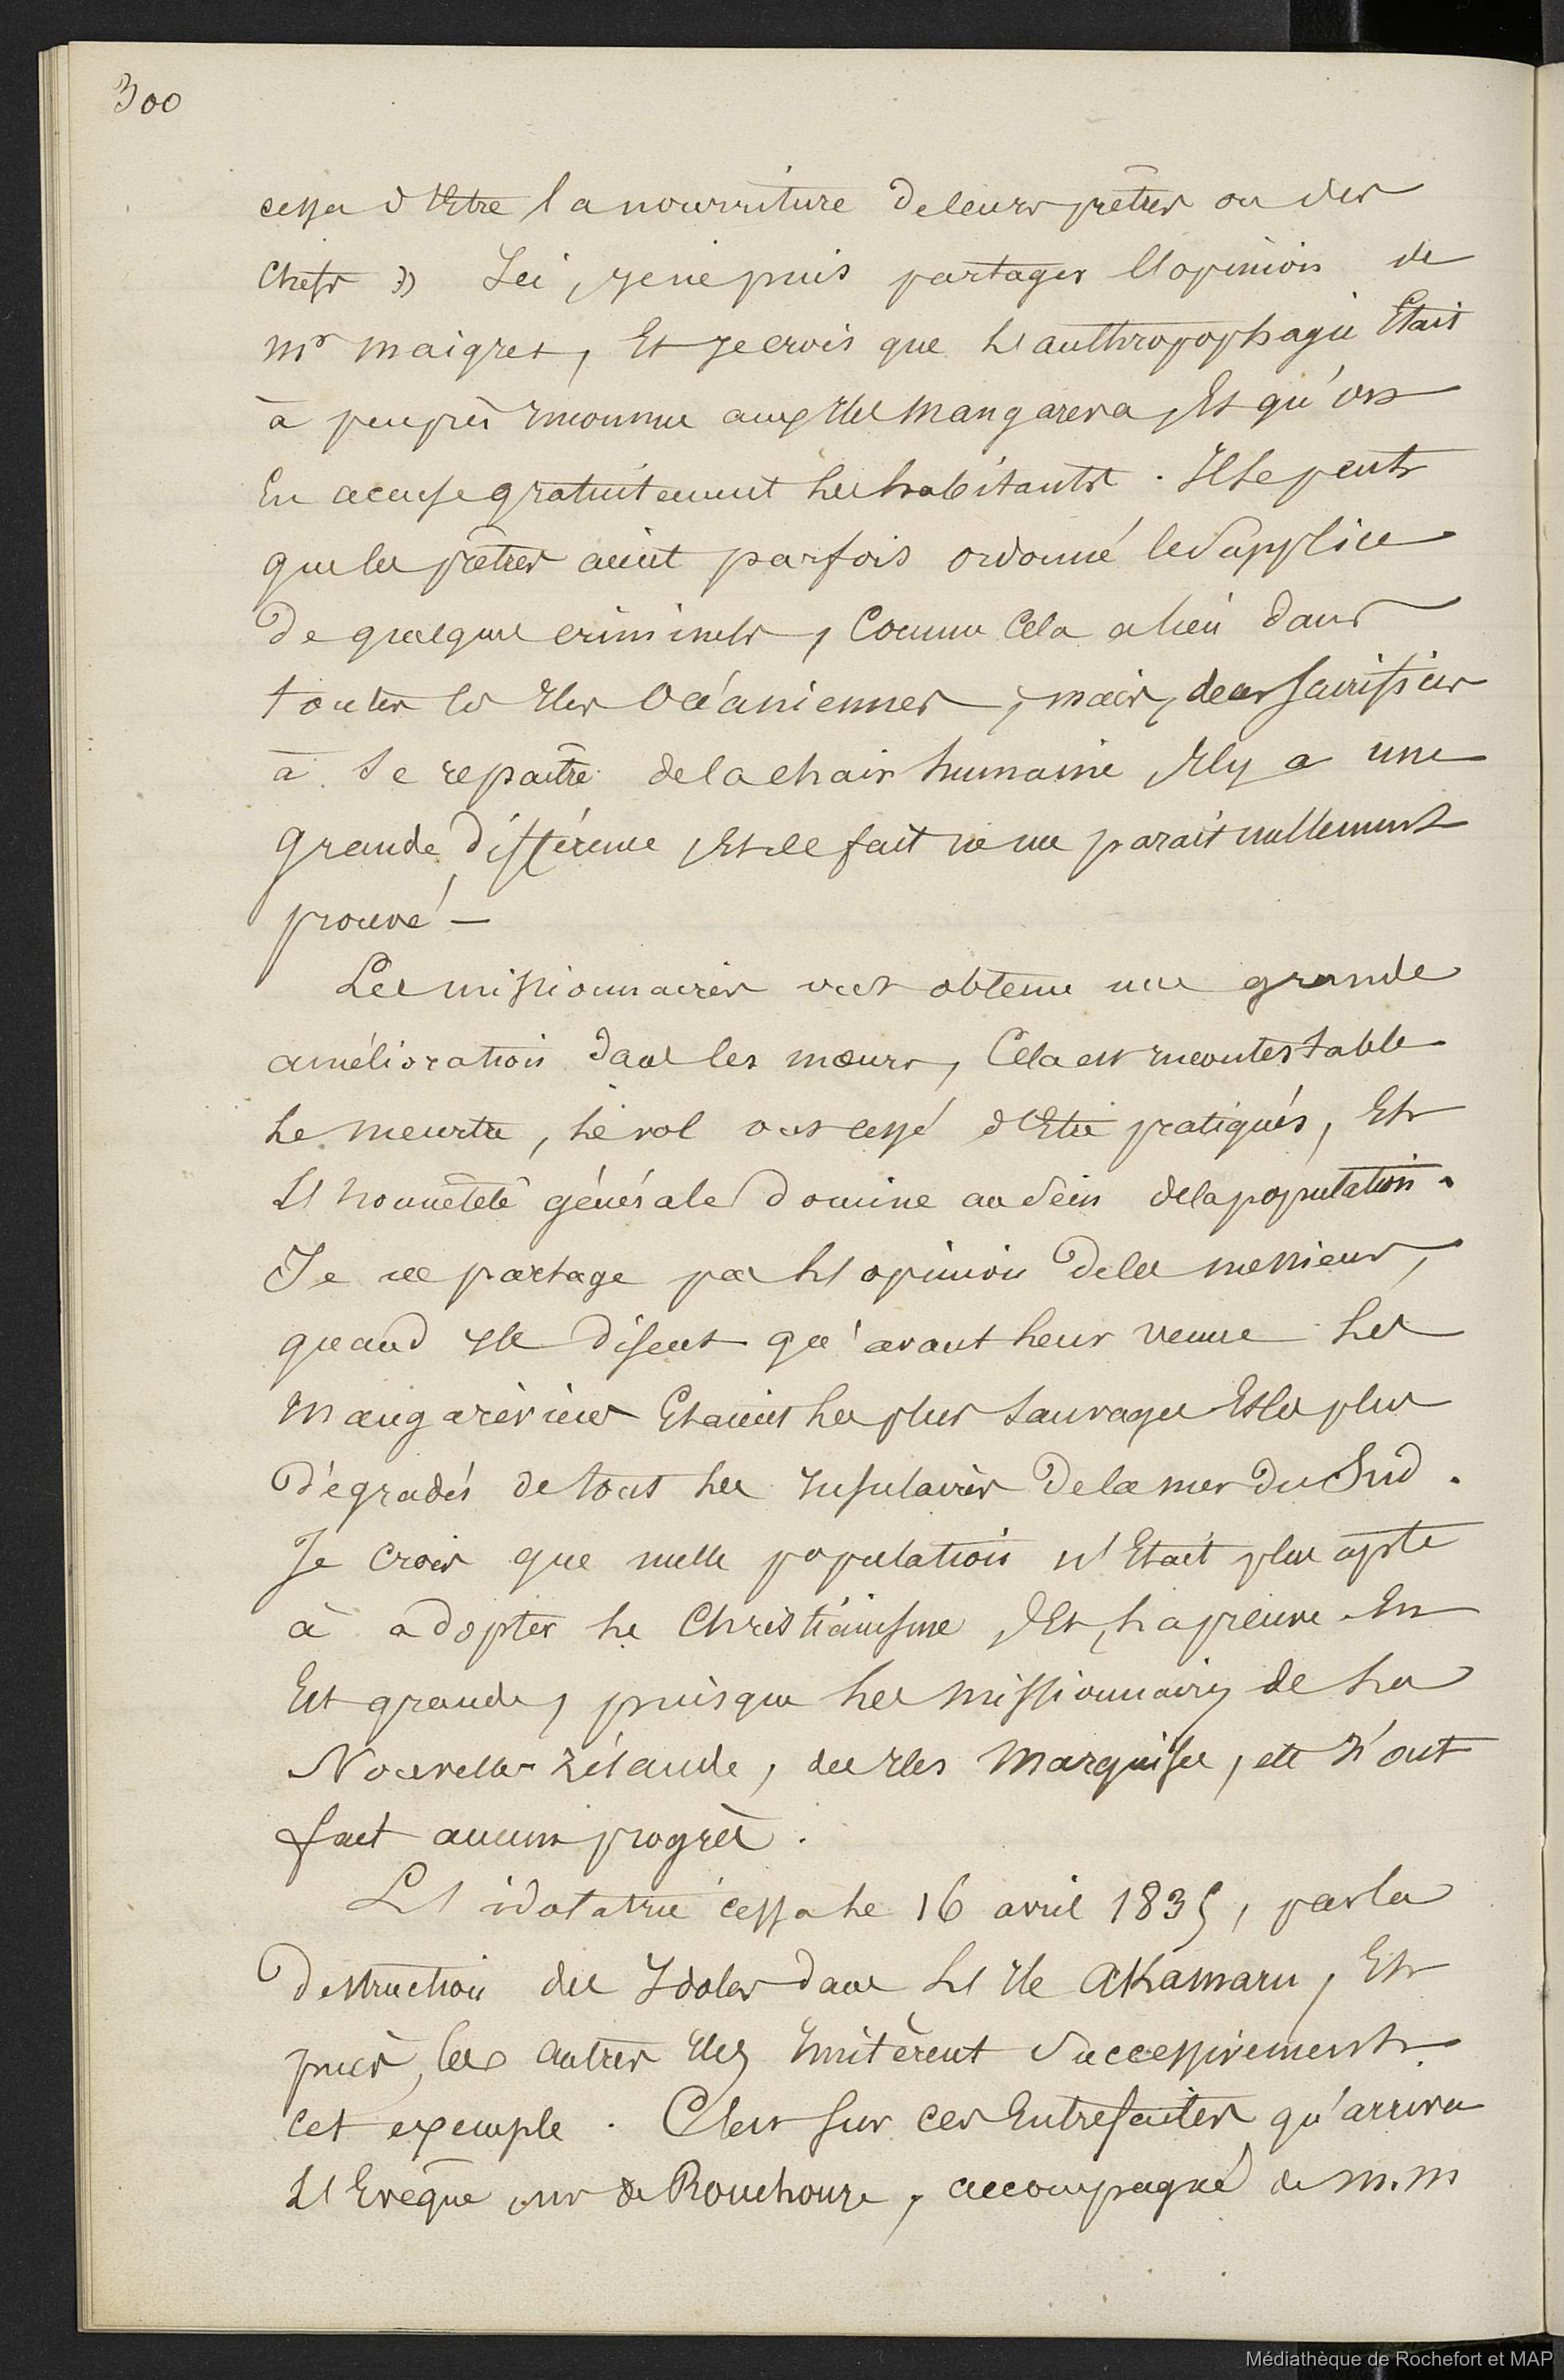 300
cessa d'Etre la nourriture de leurs prêtres ou des
Chefs » Ici, je ne puis partager l'opinion de
Mr Maigret, Et je crois que l'anthropophagie Etait
à peu près Inconnue aux Iles Mangareva, Et qu'on
En accuse gratuitement les habitants. Il se peut
que les prêtres aient parfois ordonné le Supplice
De quelques criminels, Comme Cela a lieu Dans
toutes les Iles Océaniennes, mais, de ces sacrifices
à se repaître de la chair humaine, Il y a une
grande Différence, Et ce fait ne me parait nullement
prouvé —
Les missionnaires ont obtenu une grande
amélioration Dans les mœurs, Cela est Incontestable
le meurtre, le vol ont cessé d'Etre pratiqués, Et
l'honnêteté générale Domine au Sein de la population.
Je ne partage pas l'opinion De ces messieurs,
quand Ils Disent qu'avant leur venue les
Mangaréviens Etaient les plus sauvages Et les plus
Dégradés de tous les Insulaires De la mer Du Sud.
Je Crois que nulle population n'Etait plus apte
à adopter le Christianisme, Et, la preuve En
Est grande, puisque les missionnaires de la
Nouvelle-Zélande, des Iles Marquises, etc n'ont
fait aucun progrès.
L'idolatrie cessa le 16 avril 1835, par la
Destruction des Idoles Dans l'Ile Akamaru, Et
puis, les autres Iles Imitèrent Successivement
cet exemple. C'est sur ces Entrefaites qu'arriva
l'Evêque, mr de Rouchouze, accompagné de M.M
Médiathèque de Rochefort et MAP